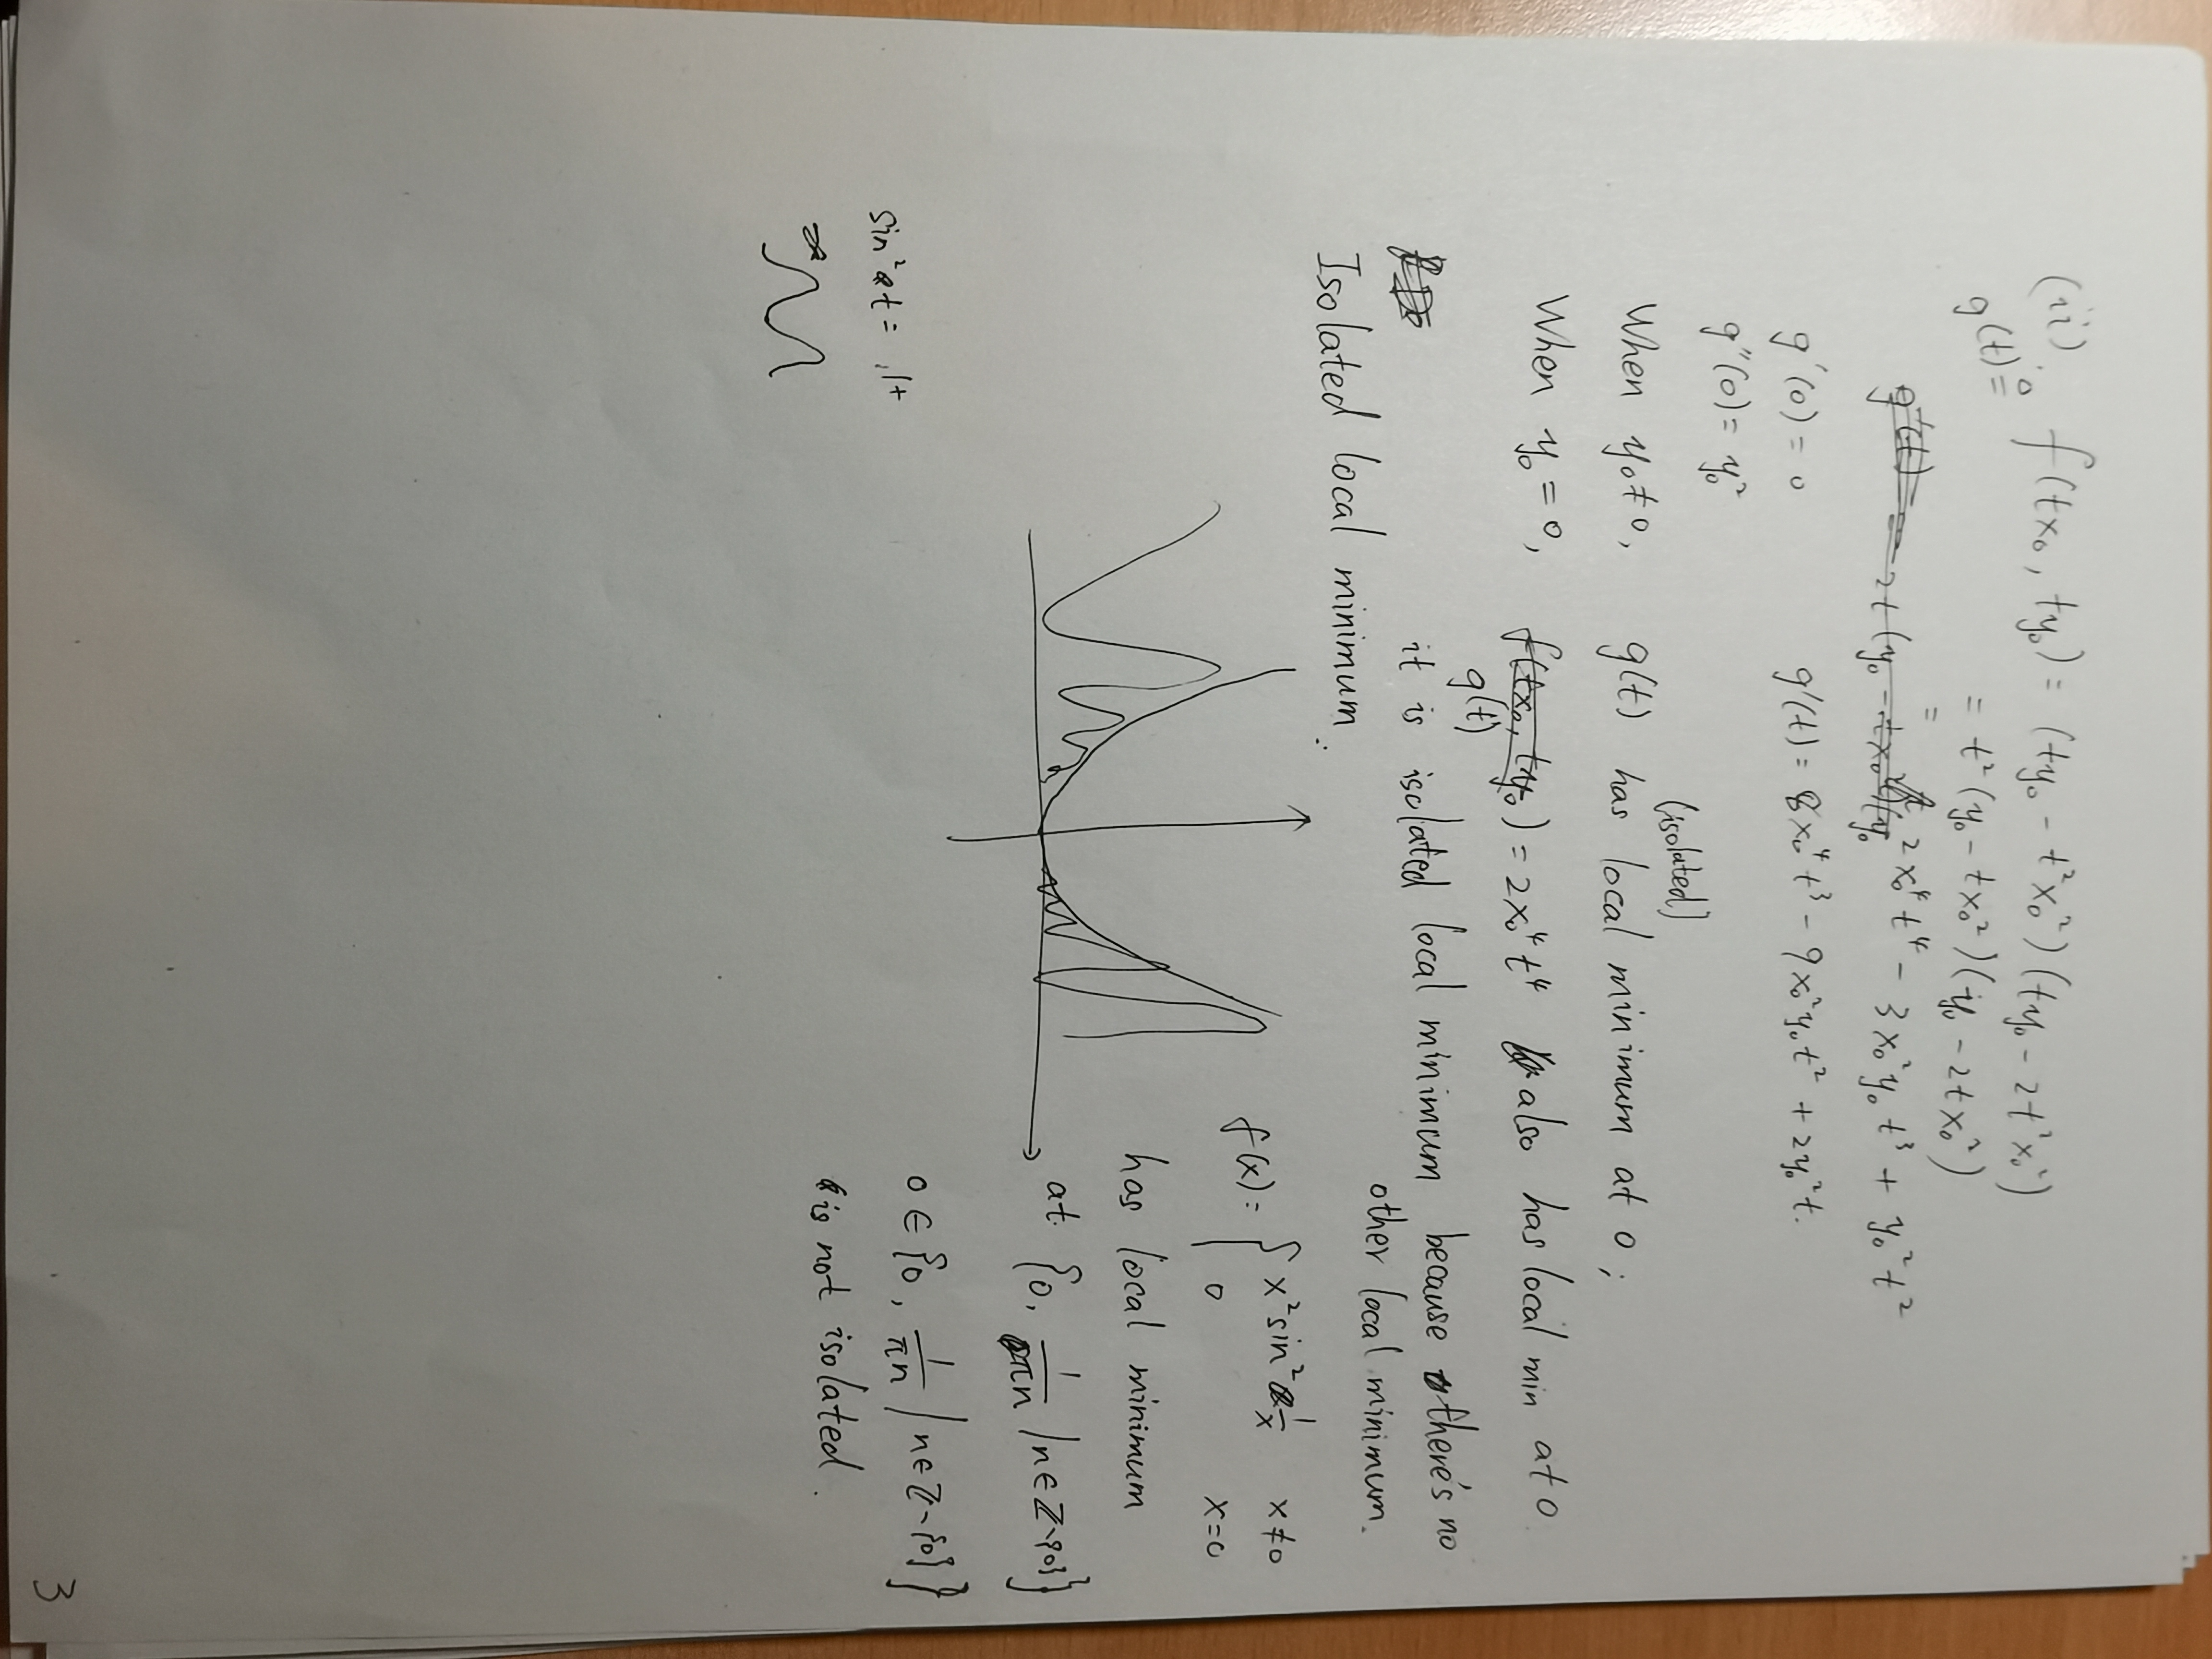 (ii). f(tx₀, ty₀) = (ty₀ - t²x₀²)(ty₀ - 2t²x₀²)
g(t) ≗
= t²(y₀ - tx₀²)(y₀ - 2tx₀²)
= 2x₀⁴t⁴ - 3x₀²y₀t³ + y₀²t²
g'(t) = 2t(y₀ - tx₀²)(y₀
g'(0) = 0 g'(t) = 8x₀⁴t³ - 9x₀²y₀t² + 2y₀²t.
g''(0) = y₀²
(isolated)
When y₀≠0, g(t) has local minimum at 0;
When y₀ = 0, f(tx₀, ty₀) = 2x₀⁴t⁴ also has local min at 0
g(t)
it is isolated local minimum because there's no
other local minimum.
Isolated local minimum.
f(x) = { x²sin² 1/x x≠0
0 x=0
has local minimum
at {0, 1/πn | n∈Z-{0}}
0 ∈ {0, 1/πn | n∈Z-{0}}
is not isolated.
sin²t = 1+
3